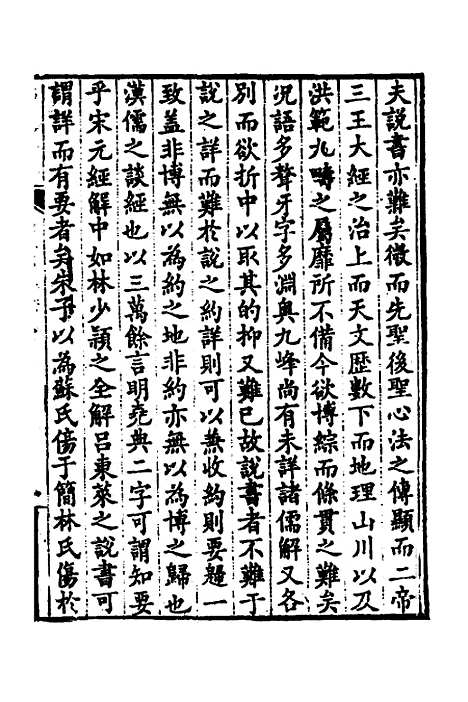 夫説書亦難矣微而先聖後聖心法之傳顯而二帝
三王大經之治上而天文歴數下而地理山川以及
洪範九疇之屬靡所不備今欲博綜而條貫之難矣
况語多聱牙字多淵奥九峰尚有未詳諸儒解又各
别而欲折中以取其的抑又難已故説書者不難于
説之詳而難於説之約詳則可以兼收約則要歸一
致盖非博無以為約之地非約亦無以為博之歸也
漢儒之談經也以三萬餘言明堯典二字可謂知要
乎宋元經解中如林少頴之全解吕東萊之説書可
謂詳而有要者矣朱子以為蘇氏傷于簡林氏傷於